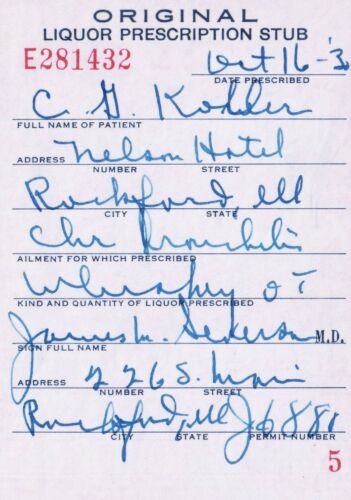 ORIGINAL
LIQUOR PRESCRIPTION STUB
E281432
Oct 16-3
DATE PRESCRIBED
C. G. Kohler
FULL NAME OF PATIENT
ADDRESS Nelson Hotel
NUMBER STREET
Rockford, Ill
CITY STATE
Chr Bronchitis
AILMENT FOR WHICH PRESCRIBED
Whiskey OT
KIND AND QUANTITY OF LIQUOR PRESCRIBED
James M. M.D.
SIGN FULL NAME
ADDRESS 226 S. Main
NUMBER STREET
Rockford, Ill J6888
CITY STATE PERMIT NUMBER
5